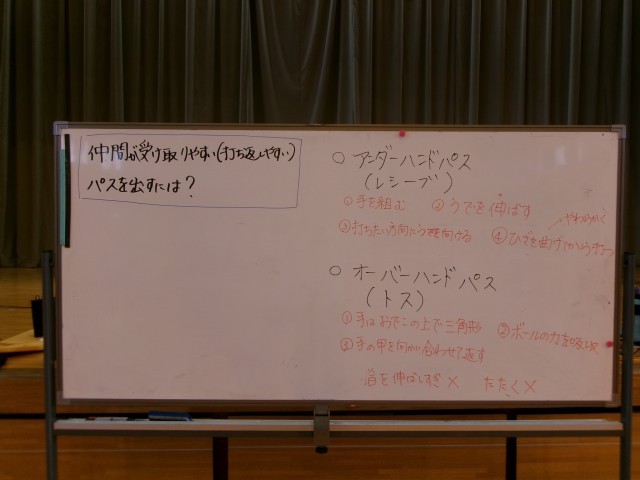 仲間が受け取りやすい(打ち返しやすい)
パスを出すには?
○ アンダーハンドパス
(レシーブ)
①手を組む ②うでを伸ばす
やわらかく
③打ちたい方向にうでを向ける ④ひざを曲げてから打つ
○ オーバーハンドパス
(トス)
①手はおでこの上で三角形 ②ボールの力を吸収
③手の甲を向かい合わせて返す
首を伸ばしすぎ× たたく×